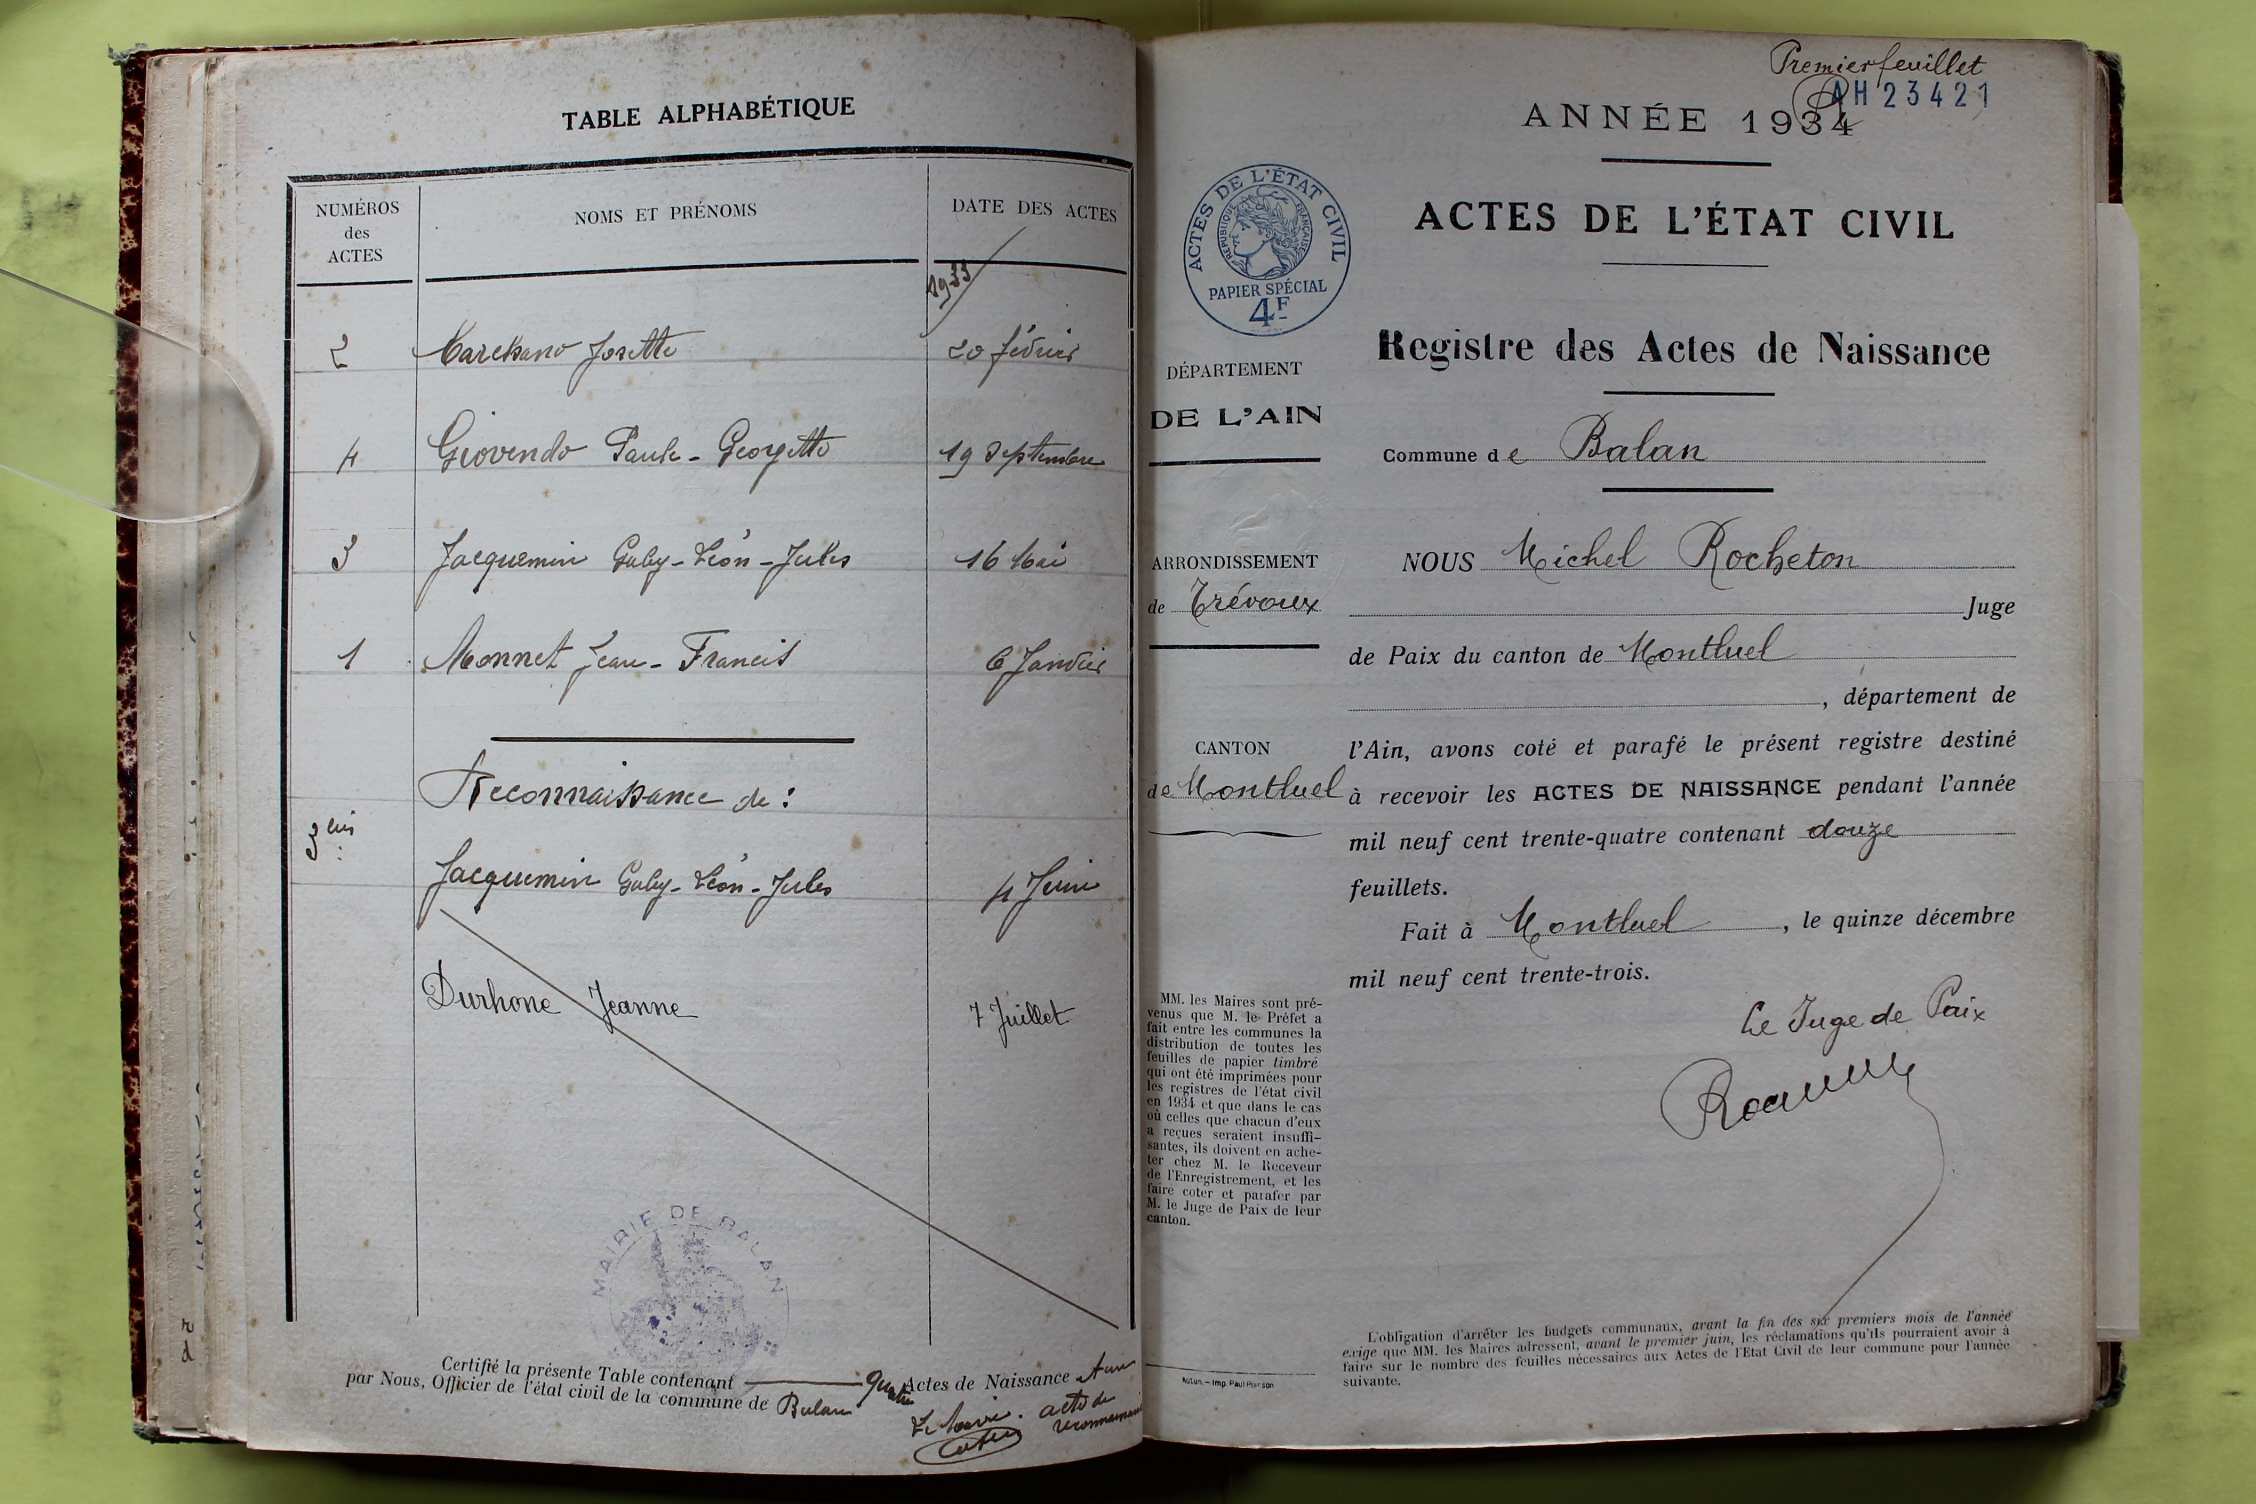 TABLE ALPHABÉTIQUE
NUMÉROS
des
ACTES
NOMS ET PRÉNOMS
DATE DES ACTES
1933
2 Josette 20 février
4 Giovendo Paule-Georgette 19 Septembre
3 Jacquemin Gaby-Léon-Jules 16 Mai
1 Monnet Jean-Francis 6 Janvier
Reconnaissance de :
3 bis
Jacquemin Gaby-Léon-Jules 4 Juin
Durhone Jeanne 7 Juillet
MAIRIE DE BALAN
Certifié la présente Table contenant quatre Actes de Naissance & un
acte de
reconnaissance
par Nous, Officier de l'état civil de la commune de Balan
Le Maire.
Premier feuillet
AH 23421
ANNÉE 1934
ACTES DE L'ÉTAT CIVIL
RÉPUBLIQUE FRANÇAISE
PAPIER SPÉCIAL
4F
ACTES DE L'ÉTAT CIVIL
Registre des Actes de Naissance
DÉPARTEMENT
DE L'AIN
Commune de Balan
ARRONDISSEMENT
de Trévoux
CANTON
de Montluel
NOUS Michel Rocheton
Juge
de Paix du canton de Montluel
, département de
l'Ain, avons coté et parafé le présent registre destiné
à recevoir les ACTES DE NAISSANCE pendant l'année
mil neuf cent trente-quatre contenant douze
feuillets.
Fait à Montluel, le quinze décembre
mil neuf cent trente-trois.
Le Juge de Paix
MM. les Maires sont pré-
venus que M. le Préfet a
fait entre les communes la
distribution de toutes les
feuilles de papier timbré
qui ont été imprimées pour
les registres de l'état civil
en 1934 et que dans le cas
où celles que chacun d'eux
a reçues seraient insuffi-
santes, ils doivent en ache-
ter chez M. le Receveur
de l'Enregistrement, et les
faire coter et parafer par
M. le Juge de Paix de leur
canton.
L'obligation d'arrêter les budgets communaux, avant la fin des six premiers mois de l'année
exige que MM. les Maires adressent, avant le premier juin, les réclamations qu'ils pourraient avoir à
faire sur le nombre des feuilles nécessaires aux Actes de l'Etat Civil de leur commune pour l'année
suivante.
Imp. Paul